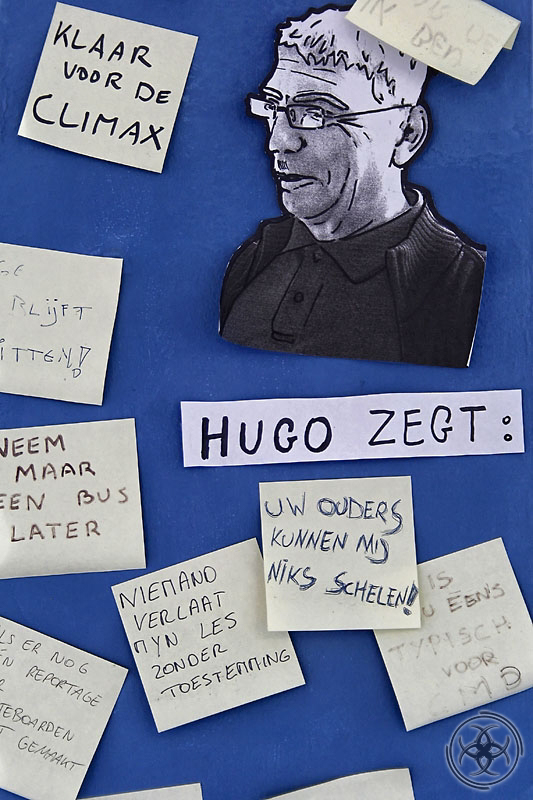 KLAAR
VOOR DE
CLIMAX
IK DEN
BLIJFT
ITTEN!
HUGO ZEGT:
NEEM
MAAR
EEN BUS
LATER
UW OUDERS
KUNNEN MIJ
NIKS SCHELEN!
NIEMAND
VERLAAT
MYN LES
ZONDER
TOESTEMMING
IS
U EENS
TYPISCH
VOOR
LS ER NOG
ÉN REPORTAGE
R
TEBOARDEN
T GEMAAKT